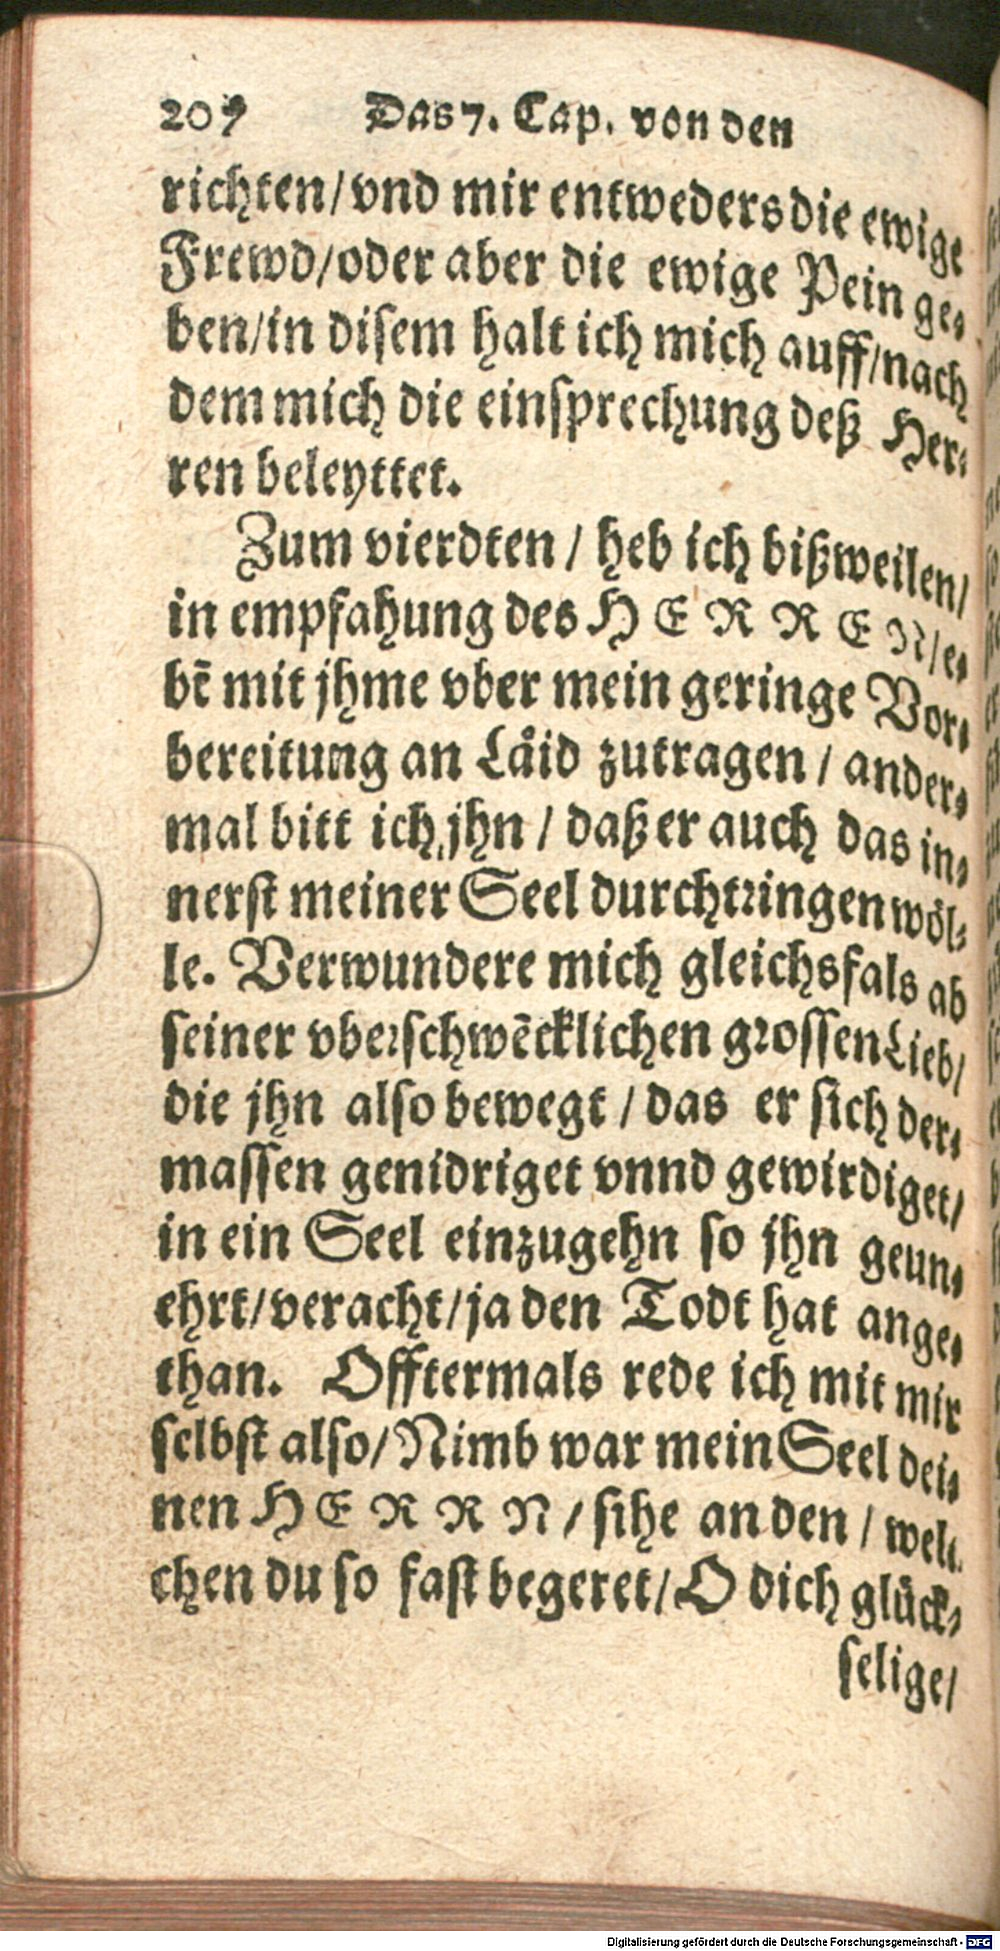 209 Das 7. Cap. von den
richten/vnd mir entweders die ewige
Frewd/oder aber die ewige Pein ge⸗
ben/in disem halt ich mich auff/nach
dem mich die einsprechung deß Her⸗
ren beleyttet.
Zum vierdten / heb ich bißweilen/
in empfahung des HERREN/e⸗
bē mit jhme vber mein geringe Vor⸗
bereitung an Laͤid zutragen / ander⸗
mal bitt ich jhn / daß er auch das in⸗
nerst meiner Seel durchtringen wöl⸗
le. Verwundere mich gleichsfals ab
seiner vberschwēcklichen grossen Lieb/
die jhn also bewegt / das er sich der⸗
massen genidriget vnnd gewirdiget/
in ein Seel einzugehn so jhn geun⸗
ehrt/veracht/ja den Todt hat ange⸗
than. Offtermals rede ich mit mir
selbst also/Nimb war mein Seel dei⸗
nen HERRN / sihe an den / wel⸗
chen du so fast begeret/O dich glück⸗
selige/
Digitalisierung gefördert durch die Deutsche Forschungsgemeinschaft - DFG